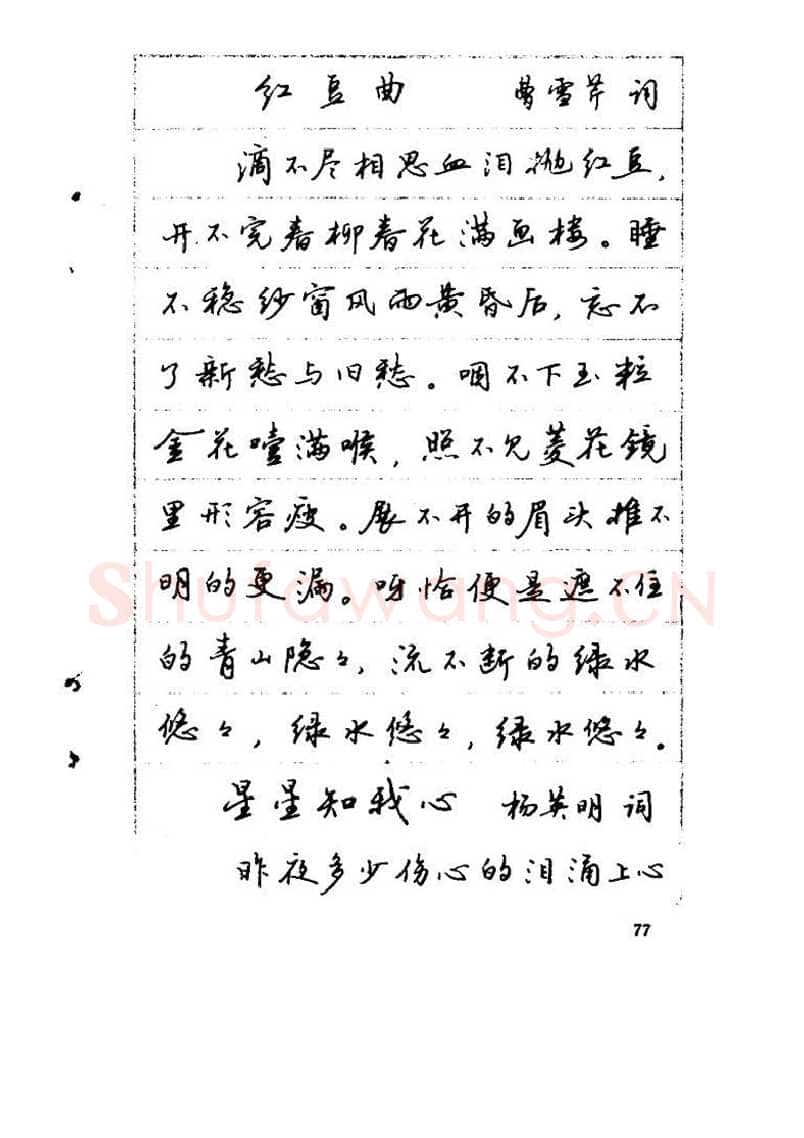 红豆曲 曹雪芹 词
滴不尽相思血泪抛红豆,
开不完春柳春花满画楼。睡
不稳纱窗风雨黄昏后,忘不
了新愁与旧愁。咽不下玉粒
金花噎满喉,照不见菱花镜
里形容瘦。展不开的眉头捱不
明的更漏。呀恰便是遮不住
的青山隐々,流不断的绿水
悠々,绿水悠々,绿水悠々。
星星知我心 杨英明 词
昨夜多少伤心的泪涌上心
77
Shufawang.CN